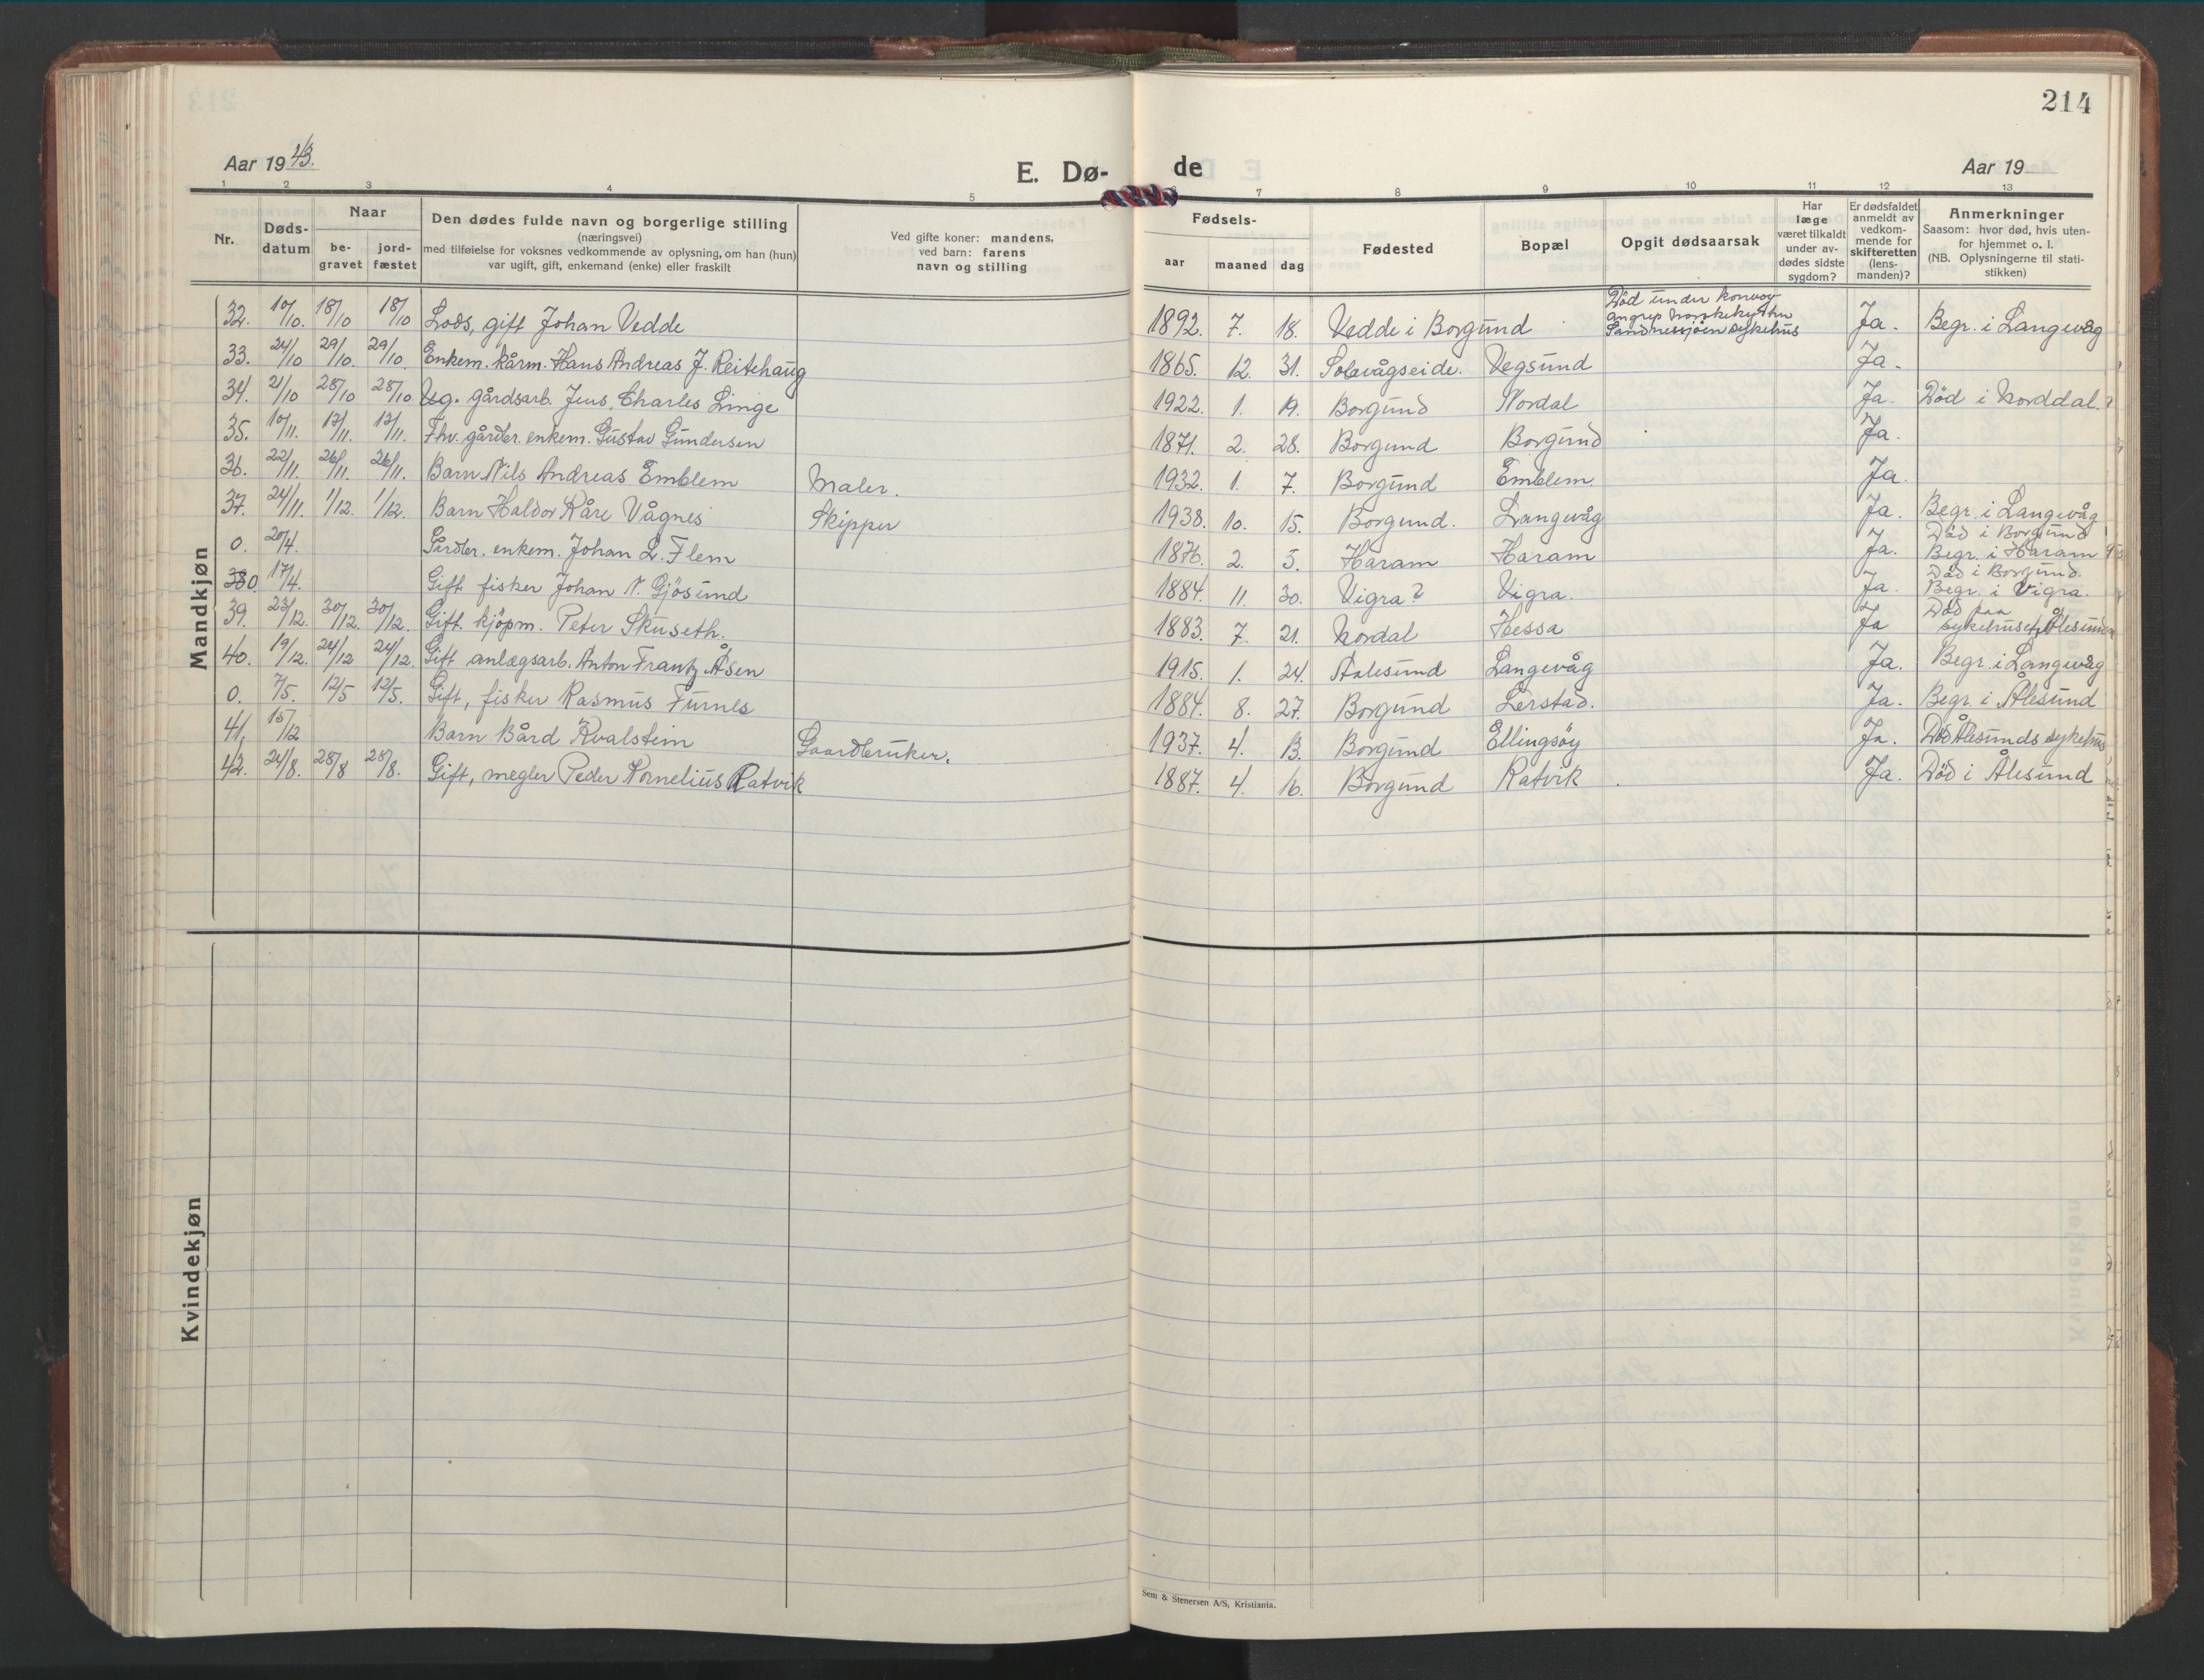 214
Aar 1943.
E. Dø-
de
Aar 19
1 2 3 4 5 6 7 8 9 10 11 12 13
Nr.
Døds-
datum
Naar
be-
gravet
jord-
fæstet
Den dødes fulde navn og borgerlige stilling
(næringsvei)
med tilføielse for voksnes vedkommende av oplysning, om han (hun)
var ugift, gift, enkemand (enke) eller fraskilt
Ved gifte koner: mandens,
ved barn: farens
navn og stilling
Fødsels-
aar
maaned
dag
Fødested
Bopæl
Opgit dødsaarsak
Har
læge
været tilkaldt
under av-
dødes sidste
sygdom?
Er dødsfaldet
anmeldt av
vedkom-
mende for
skifteretten
(lens-
manden)?
Anmerkninger
Saasom: hvor død, hvis uten-
for hjemmet o. l.
(NB. Oplysningerne til stati-
stikken)
Mandkjøn
32. 10/10. 18/10 18/10 Lods, gift Johan Vedde 1892. 7. 18. Vedde i Borgund Död under konvoy
angrep Norskekysten
Sandnessjöen sykehus Ja. Begr. i Langevåg
33. 24/10 29/10. 29/10. Enkem. kårm. Hans Andreas J. Reitehaug 1865. 12. 31. Solevågseide. Vegsund Ja.
34. 21/10 28/10 28/10 Ug. gårdsarb. Jens Charles Linge 1922. 1. 19. Borgund Nordal Ja. Död i Norddal.
35. 10/11. 17/11. 17/11. Fhv. gårdbr. enkem. Gustav Gundersen 1871. 2. 28. Borgund Borgund Ja.
36. 22/11. 26/11. 26/11. Barn Nils Andreas Emblem Maler. 1932. 1. 7. Borgund Emblem. Ja.
37. 24/11. 1/12. 1/12. Barn Haldor Kåre Vågnes Skipper 1938. 10. 15. Borgund. Langevåg Ja. Begr. i Langevåg
0. 20/4. Gårdbr. enkem. Johan L. Flem 1876. 2. 5. Haram Haram Ja. Död i Borgund
Begr. i Haram
380. 17/4. Gift fisker Johan N. Gjösund 1884. 11. 30. Vigra? Vigra. Ja. Död i Borgund.
Begr. i Vigra.
39. 23/12. 30/12. 30/12. Gift kjöpm. Peter Skuseth. 1883. 7. 21. Nordal Hessa Ja Död paa
sykehuset, Ålesund
40. 19/12. 24/12 24/12. Gift anlægsarb. Anton Frantz Åsen 1915. 1. 24. Aalesund Langevåg Ja. Begr. i Langevåg
0. 7/5. 12/5 12/5. Gift, fisker Rasmus Furnes 1884. 8. 27. Borgund Lerstad. Ja. Begr. i Ålesund
41. 15/12 Barn Bård Kvalstein Gaardbruker. 1937. 4. 13. Borgund Ellingsöy Ja. Död Ålesunds sykehus
42. 24/8. 28/8 28/8. Gift, megler Peder Kornelius Ratvik 1887. 4. 16. Borgund Ratvik Ja. Död i Ålesund
Kvindekjøn
Sem & Stenersen A/S, Kristiania.